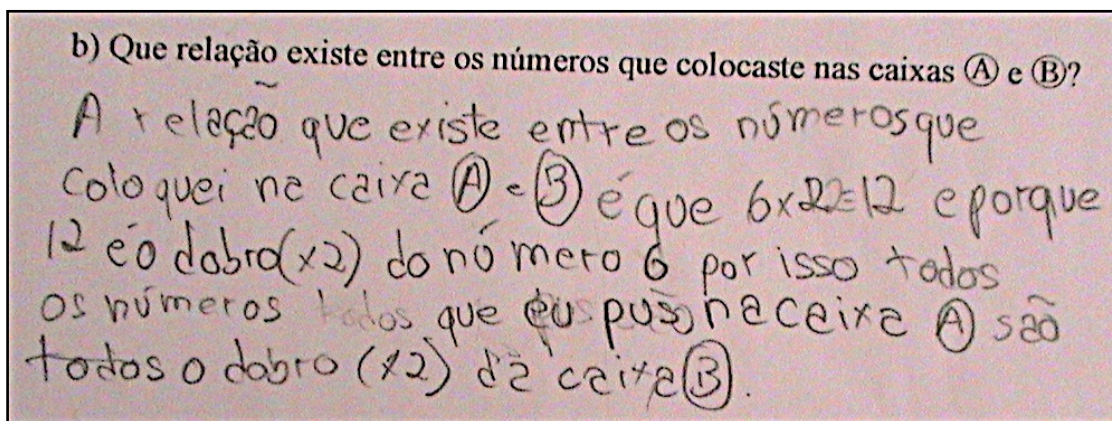 b) Que relação existe entre os números que colocaste nas caixas Ⓐ e Ⓑ?
A relação que existe entre os números que
coloquei na caixa Ⓐ e Ⓑ é que 6x2=12 e porque
12 é o dobro (x2) do número 6 por isso todos
os números todos que eu pus na caixa Ⓐ são
todos o dobro (x2) da caixa Ⓑ.